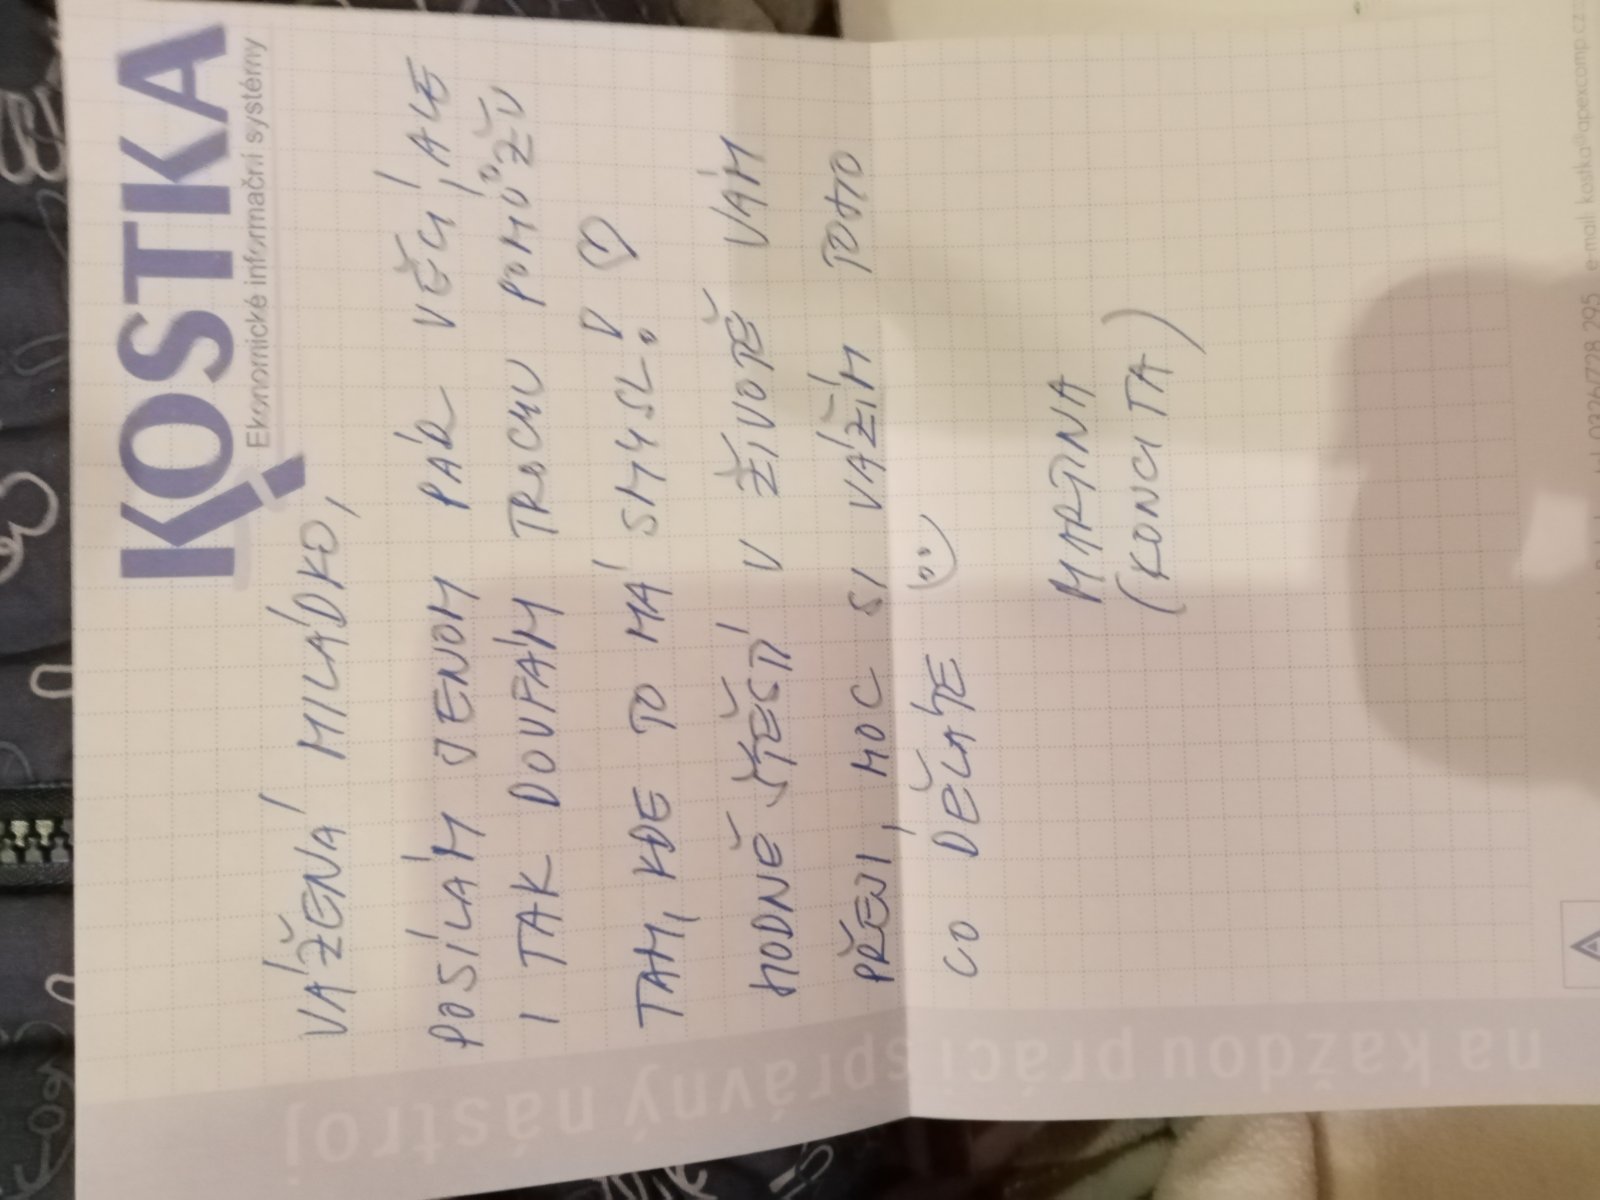 KOSTKA
Ekonomické informační systémy
VÁŽENÁ MILÁDKO,
POSÍLÁM JENOM PÁR VĚCÍ, ALE
I TAK DOUFÁM TROCHU POMŮŽU
TAM, KDE TO MÁ SMYSL! ♡
HODNĚ ŠTĚSTÍ V ŽIVOTĚ VÁM
PŘEJI, MOC SI VÁŽÍM TOHO
CO DĚLÁTE
MARTINA
(KONCITA)
na každou práci správný nástroj
tel. 0326/728 295 e-mail kostka@apexcomp.cz